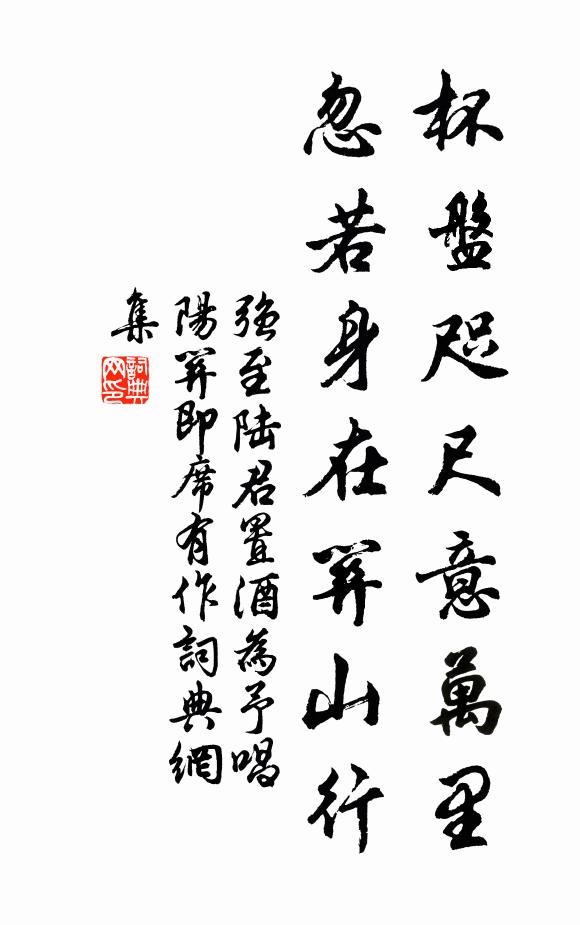 杯盤咫尺意萬里
忽若身在關山行
強至陸君置酒為予唱
陽關即席有作詞典網
集
詞典網印